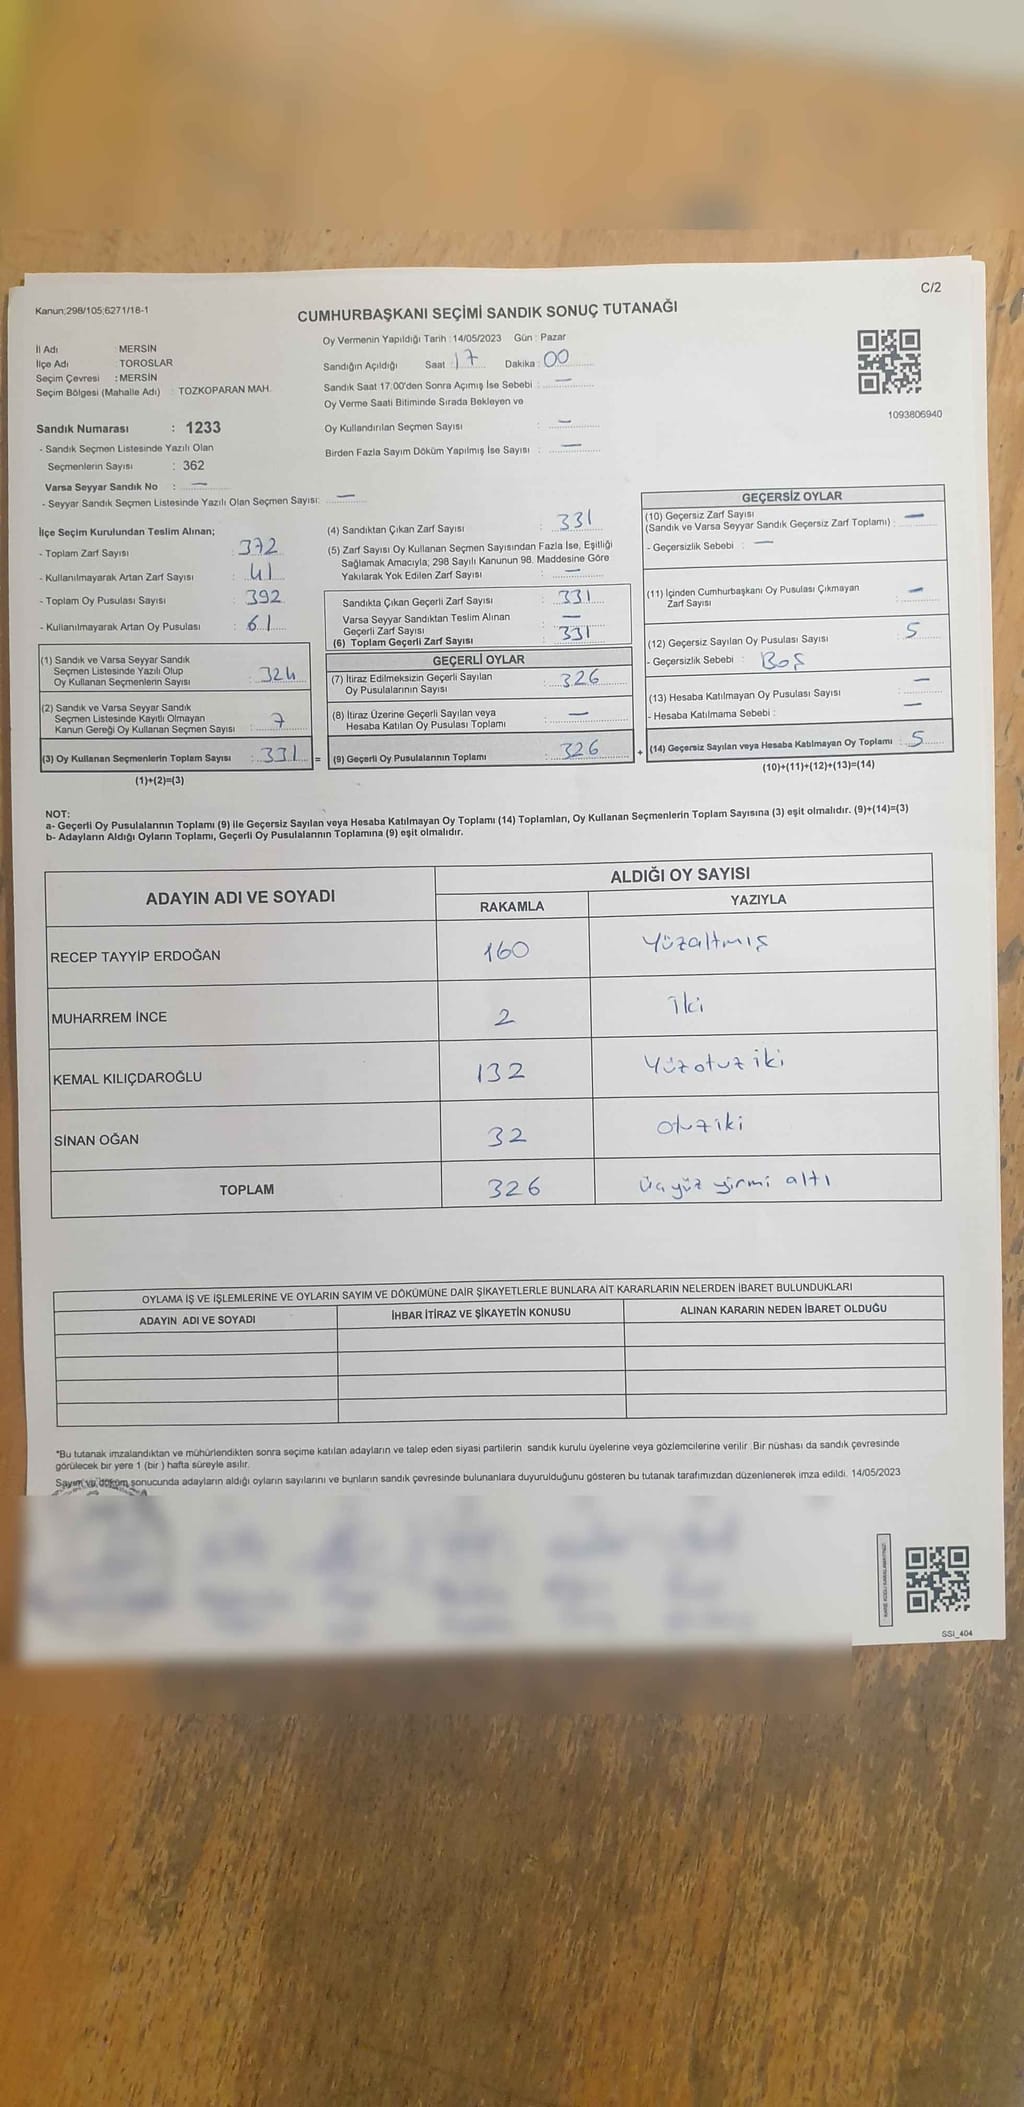 C/2
Kanun;298/105;6271/18-1
CUMHURBAŞKANI SEÇİMİ SANDIK SONUÇ TUTANAĞI
İl Adı : MERSİN
İlçe Adı : TOROSLAR
Seçim Çevresi : MERSİN
Seçim Bölgesi (Mahalle Adı) : TOZKOPARAN MAH.
Sandık Numarası : 1233
- Sandık Seçmen Listesinde Yazılı Olan
Seçmenlerin Sayısı : 362
Varsa Seyyar Sandık No : —
- Seyyar Sandık Seçmen Listesinde Yazılı Olan Seçmen Sayısı: —
Oy Vermenin Yapıldığı Tarih : 14/05/2023 Gün : Pazar
Sandığın Açıldığı Saat : 17 Dakika : 00
Sandık Saat 17:00'den Sonra Açımış İse Sebebi : —
Oy Verme Saati Bitiminde Sırada Bekleyen ve
Oy Kullandırılan Seçmen Sayısı : —
Birden Fazla Sayım Döküm Yapılmış İse Sayısı : —
1093806940
İlçe Seçim Kurulundan Teslim Alınan;
- Toplam Zarf Sayısı : 372
- Kullanılmayarak Artan Zarf Sayısı : 41
- Toplam Oy Pusulası Sayısı : 392
- Kullanılmayarak Artan Oy Pusulası : 61
(1) Sandık ve Varsa Seyyar Sandık
Seçmen Listesinde Yazılı Olup
Oy Kullanan Seçmenlerin Sayısı : 324
(2) Sandık ve Varsa Seyyar Sandık
Seçmen Listesinde Kayıtlı Olmayan
Kanun Gereği Oy Kullanan Seçmen Sayısı : 7
(3) Oy Kullanan Seçmenlerin Toplam Sayısı : 331 =
(1)+(2)=(3)
(4) Sandıktan Çıkan Zarf Sayısı : 331
(5) Zarf Sayısı Oy Kullanan Seçmen Sayısından Fazla İse, Eşitliği
Sağlamak Amacıyla; 298 Sayılı Kanunun 98. Maddesine Göre
Yakılarak Yok Edilen Zarf Sayısı : —
Sandıkta Çıkan Geçerli Zarf Sayısı : 331
Varsa Seyyar Sandıktan Teslim Alınan
Geçerli Zarf Sayısı : —
(6) Toplam Geçerli Zarf Sayısı : 331
GEÇERLİ OYLAR
(7) İtiraz Edilmeksizin Geçerli Sayılan
Oy Pusulalarının Sayısı : 326
(8) İtiraz Üzerine Geçerli Sayılan veya
Hesaba Katılan Oy Pusulası Toplamı : —
(9) Geçerli Oy Pusulalarının Toplamı : 326 +
GEÇERSİZ OYLAR
(10) Geçersiz Zarf Sayısı
(Sandık ve Varsa Seyyar Sandık Geçersiz Zarf Toplamı) : —
- Geçersizlik Sebebi : —
(11) İçinden Cumhurbaşkanı Oy Pusulası Çıkmayan
Zarf Sayısı : —
(12) Geçersiz Sayılan Oy Pusulası Sayısı : 5
- Geçersizlik Sebebi : Boş
(13) Hesaba Katılmayan Oy Pusulası Sayısı : —
- Hesaba Katılmama Sebebi : —
(14) Geçersiz Sayılan veya Hesaba Katılmayan Oy Toplamı : 5
(10)+(11)+(12)+(13)=(14)
NOT:
a- Geçerli Oy Pusulalarının Toplamı (9) ile Geçersiz Sayılan veya Hesaba Katılmayan Oy Toplamı (14) Toplamları, Oy Kullanan Seçmenlerin Toplam Sayısına (3) eşit olmalıdır. (9)+(14)=(3)
b- Adayların Aldığı Oyların Toplamı, Geçerli Oy Pusulalarının Toplamına (9) eşit olmalıdır.
ADAYIN ADI VE SOYADI
ALDIĞI OY SAYISI
RAKAMLA YAZIYLA
RECEP TAYYİP ERDOĞAN 160 Yüzaltmış
MUHARREM İNCE 2 İki
KEMAL KILIÇDAROĞLU 132 Yüzotuz iki
SİNAN OĞAN 32 otuziki
TOPLAM 326 üçyüz yirmi altı
OYLAMA İŞ VE İŞLEMLERİNE VE OYLARIN SAYIM VE DÖKÜMÜNE DAİR ŞİKAYETLERLE BUNLARA AİT KARARLARIN NELERDEN İBARET BULUNDUKLARI
ADAYIN ADI VE SOYADI İHBAR İTİRAZ VE ŞİKAYETİN KONUSU ALINAN KARARIN NEDEN İBARET OLDUĞU
*Bu tutanak imzalandıktan ve mühürlendikten sonra seçime katılan adayların ve talep eden siyasi partilerin sandık kurulu üyelerine veya gözlemcilerine verilir. Bir nüshası da sandık çevresinde
görülecek bir yere 1 (bir ) hafta süreyle asılır.
Sayım ve döküm sonucunda adayların aldığı oyların sayılarını ve bunların sandık çevresinde bulunanlara duyurulduğunu gösteren bu tutanak tarafımızdan düzenlenerek imza edildi. 14/05/2023
SSI_404